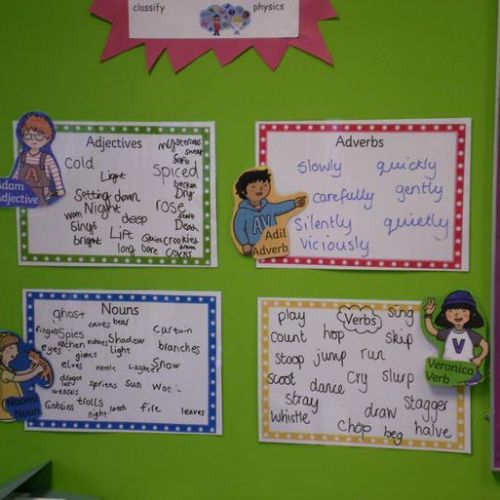 classify physics
Adam
Adjective
Adjectives
mysterious
Cold
safe
Light
Spiced
broken
Dry
Setting down
rose
Night
worn
deep
Sings
Dead
Lift
bright
Quiet Crooked
long bare
Cracks
Adverbs
slowly quickly
carefully gently
Silently quietly
viciously
AV
Adil
Adverb
Nouns
ghost
eaves bear
fingers
Spies
Curtain
kitchen echoes Shadow
eyes
light
branches
games
elves
kettle
Snow
dragon
weasels
sprites sun
Goblins
trolls
night
latch
fire
leaves
Naomi
Noun
Verbs
play
sing
count hop
skip
stoop jump run
scoot
dance
Cry
slurp
stray
draw
stagger
whistle
chop
beg
halve
V
Veronica
Verb